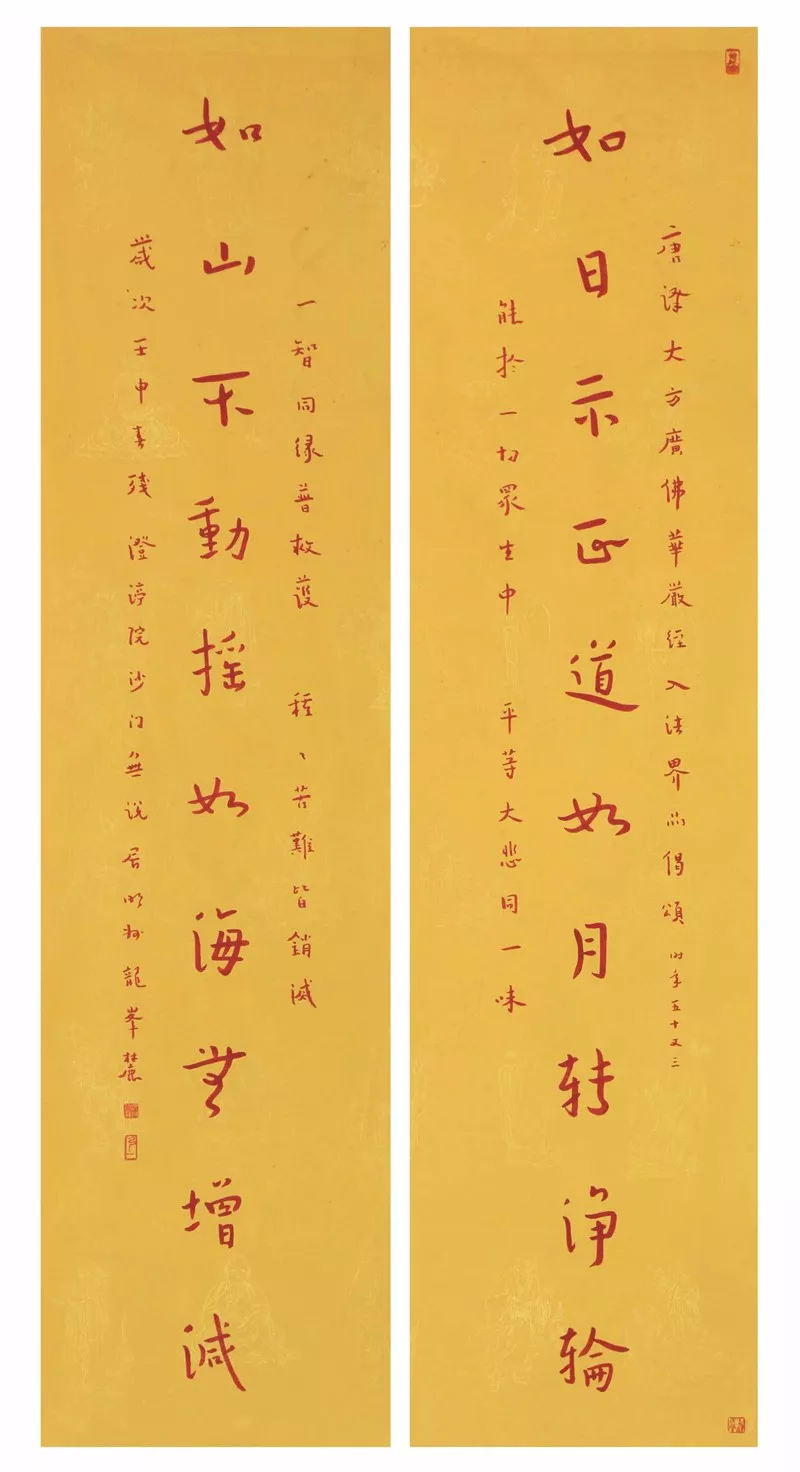 唐譯大方廣佛華嚴經入法界品偈頌 時年五十又三
如日示正道如月轉淨輪
能於一切眾生中 平等大悲同一味
一智同緣普救護 種々苦難皆銷滅
如山不動搖如海無增減
歲次壬申春殘 澄渟院沙门無説居明州龍峯麓